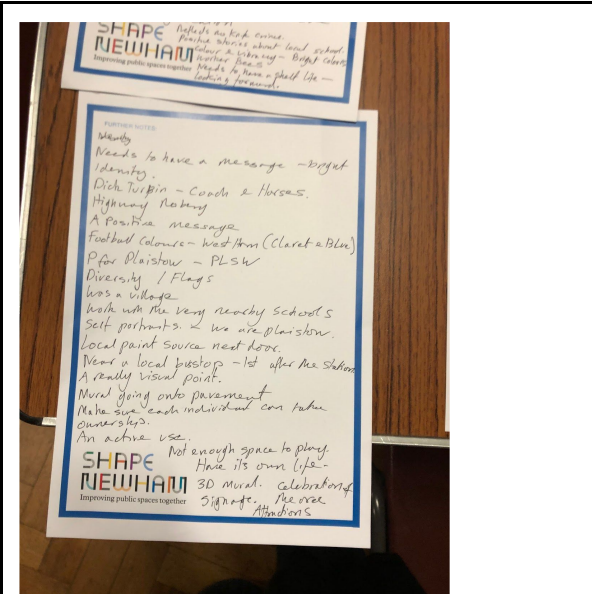 SHAPE
NEWHAM
Improving public spaces together
Positive stories about local school.
Colour & vibrancy – Bright colours
Worker Bees
Needs to have a shelf life –
looking forward.
FURTHER NOTES
Identity
Needs to have a message – bright
Identity.
Dick Turpin – Coach & Horses.
Highway Robery
A Positive message
Football Colours – West Ham (Claret & Blue)
P for Plaistow – PLSW
Diversity / Flags
Was a village
Work with the very nearby schools
Self portraits. & we are plaistow.
Local paint source next door.
Near a local busstop – 1st after the station
A really visual point.
Mural going onto pavement
Make sure each individual can take
ownership.
An active use.
Not enough space to play.
Have its own life –
3D Mural. Celebration of
Signage. the area
Attractions
SHAPE
NEWHAM
Improving public spaces together